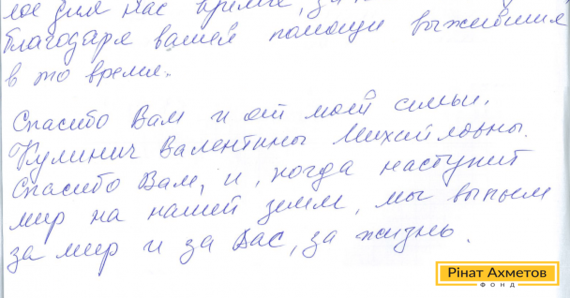 лое для нас время, за
благодаря вашей помощи выжившие
в то время.
Спасибо Вам и от моей семьи,
Кулинич Валентины Михайловны.
Спасибо Вам, и, когда наступит
мир на нашей земле, мы выпьем
за мир и за Вас, за жизнь.
Рінат Ахметов
ФОНД